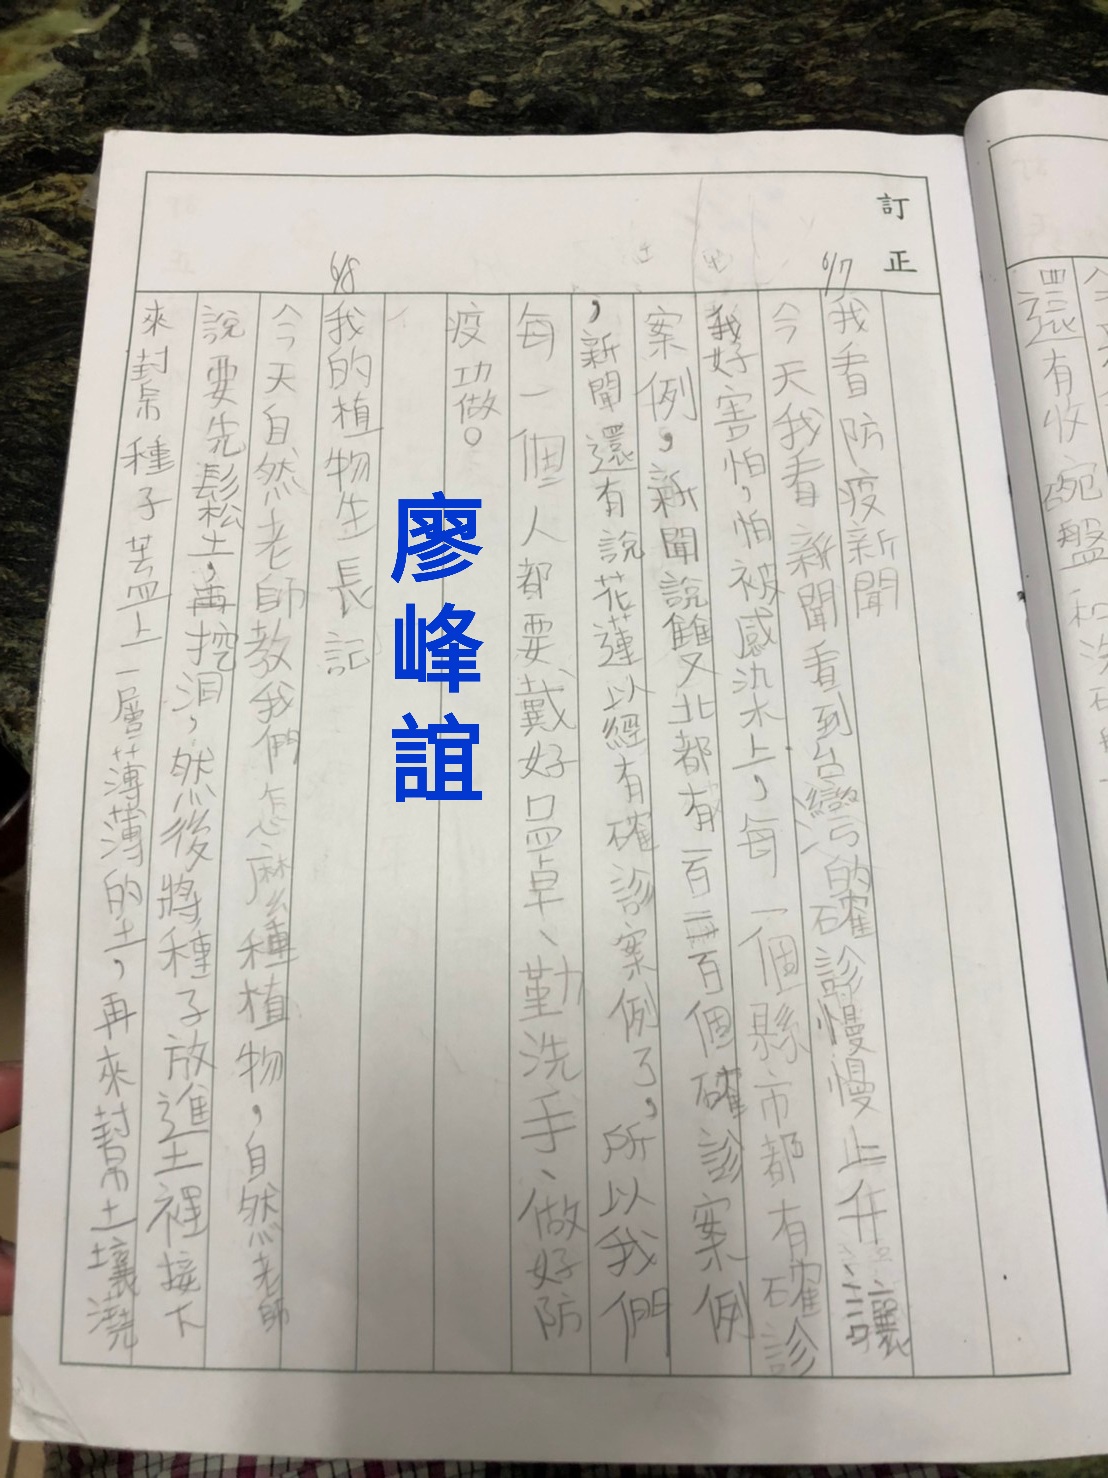 訂正
6/7
我看防疫新聞
今天我看新聞看到台灣的確診慢慢上升讓
我好害怕,怕被感染上,每一個縣市都有確診
案例,新聞說雙北都有一百二百個確診案例
,新聞還有說花蓮以經有確診案例了,所以我們
每一個人都要戴好口罩、勤洗手、做好防
疫功做。
廖峰誼
6/8
我的植物生長記
今天自然老師教我們怎麼種植物,自然老師
說要先鬆土,再挖洞,然後將種子放進土裡接下
來封帛種子苦皿上一層薄薄的土,再來封帛土壤澆
還有收碗盤和洗碗